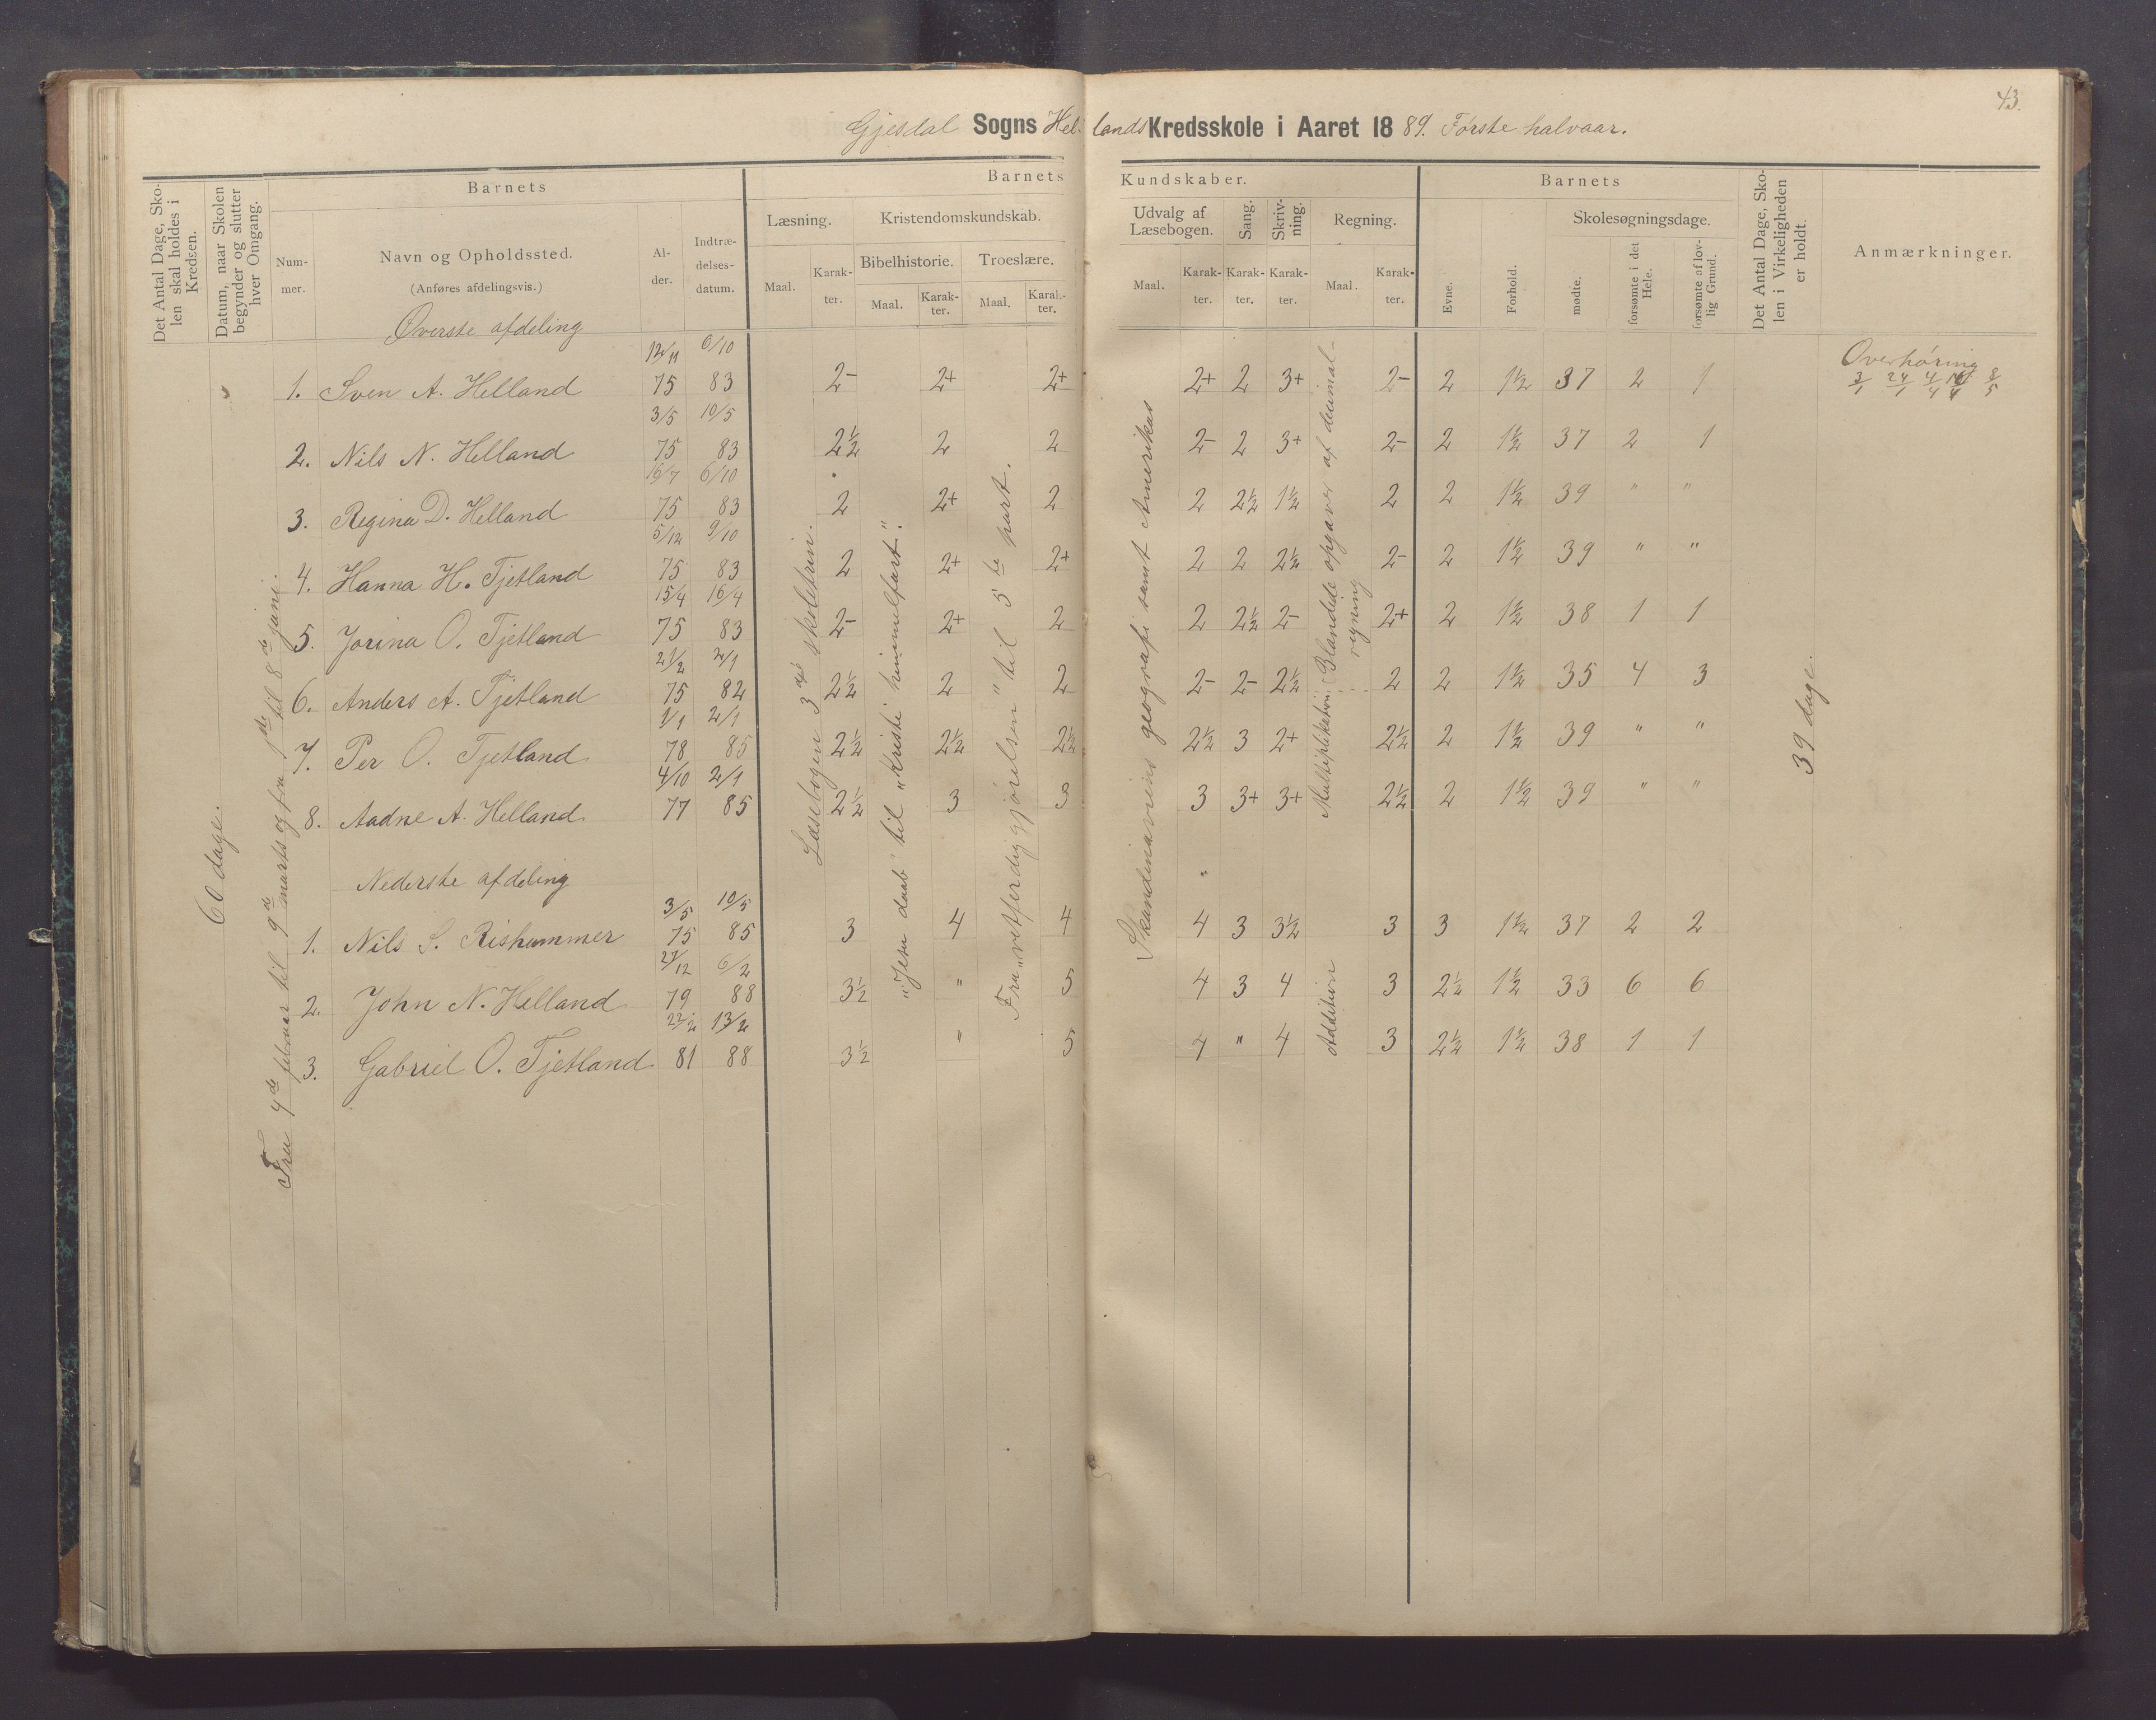 43.
Gjesdal Sogns Hellands Kredsskole i Aaret 1889. Første halvaar.
Det Antal Dage, Skolen skal holdes i Kredsen.
Datum, naar Skolen begynder og slutter hver Omgang.
Barnets
Nummer.
Navn og Opholdssted.
(Anføres afdelingsvis.)
Alder.
Indtrædelsesdatum.
Barnets Kundskaber.
Læsning.
Maal.
Karakter.
Kristendomskundskab.
Bibelhistorie.
Maal.
Karakter.
Troeslære.
Maal.
Karakter.
Udvalg af Læsebogen.
Maal.
Karakter.
Sang.
Karakter.
Skrivning.
Karakter.
Regning.
Maal.
Karakter.
Barnets
Evne.
Forhold.
Skolesøgningsdage.
mødte.
forsømte i det Hele.
forsømte af lovlig Grund.
Det Antal Dage, Skolen i Virkeligheden er holdt.
Anmærkninger.
60 dage.
Fra 4de februar til 9de marts og fra 1ste til 8de juni.
Læsebogen 3die skoletrin.
"Jesu daab" til "Kristi himmelfart".
Fra "retferdiggjørelsen" til 5te part.
Skandinaviens geografi samt Amerikas
Multiplikation. Blandede opgaver af decimalregning
Addition
39 dage.
Overhøring
Øverste afdeling
1. Sven A. Helland 12/11 75 6/10 83 2- 2+ 2+ 2+ 2 3+ 2- 2 1½ 37 2 1
2. Nils N. Helland 3/5 75 10/5 83 2½ 2 2 2- 2 3+ 2- 2 1½ 37 2 1
3. Regina D. Helland 16/7 75 6/10 83 2 2+ 2 2 2½ 1½ 2 2 1½ 39 " "
4. Hanna H. Tjetland 5/12 75 9/10 83 2 2+ 2+ 2 2 2½ 2- 2 1½ 39 " "
5. Jorina O. Tjetland 15/4 75 16/4 83 2- 2+ 2 2 2½ 2- 2+ 2 1½ 38 1 1
6. Anders A. Tjetland 21/2 75 2/1 82 2½ 2 2 2- 2- 2½ 2 2 1½ 35 4 3
7. Per O. Tjetland 1/1 78 2/1 85 2½ 2½ 2½ 2½ 3 2+ 2½ 2 1½ 39 " "
8. Aadne A. Helland 4/10 77 2/1 85 2½ 3 3 3 3+ 3+ 2½ 2 1½ 39 " "
Nederste afdeling "
1. Nils S. Rishummer 3/5 75 10/5 85 3 4 4 4 3 3½ 3 3 1½ 37 2 2
2. John N. Helland 27/12 79 6/2 88 3½ " 5 4 3 4 3 2½ 1½ 33 6 6
3. Gabriel O. Tjetland 22/2 81 13/2 88 3½ " 5 4 " 4 3 2½ 1½ 38 1 1